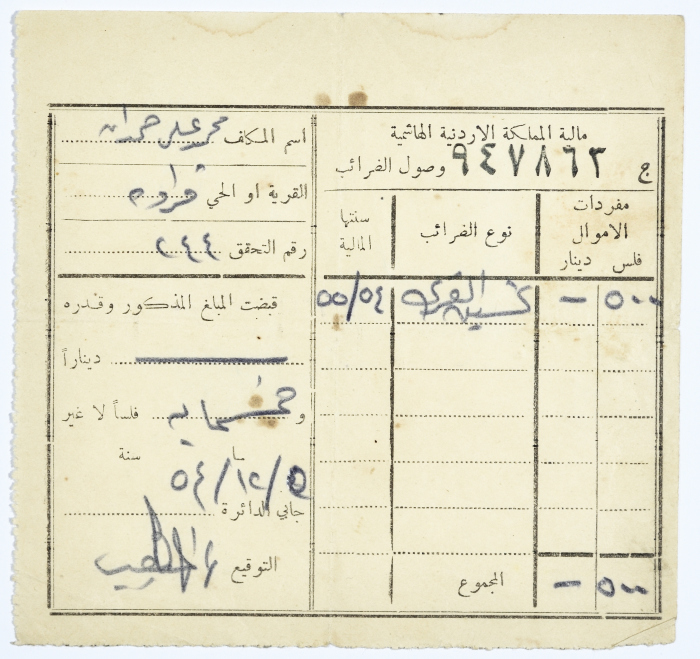 مالية المملكة الاردنية الهاشمية
ج ٩٤٧٨٦٣ وصول الضرائب
مفردات الاموال
فلس دينار
نوع الضرائب
سنتها المالية
٥٠٠ - تحسين القرى ٥٥/٥٤
المجموع
٥٠٠ -
اسم المكلف محمد علي حمدان
القرية او الحي
رقم التحقق ٢٤٤
قبضت المبلغ المذكور وقدره
ــــ ديناراً
و خمسماية فلساً لا غير
سنة
٥/١٢/٥٤
جابي الدائرة
التوقيع